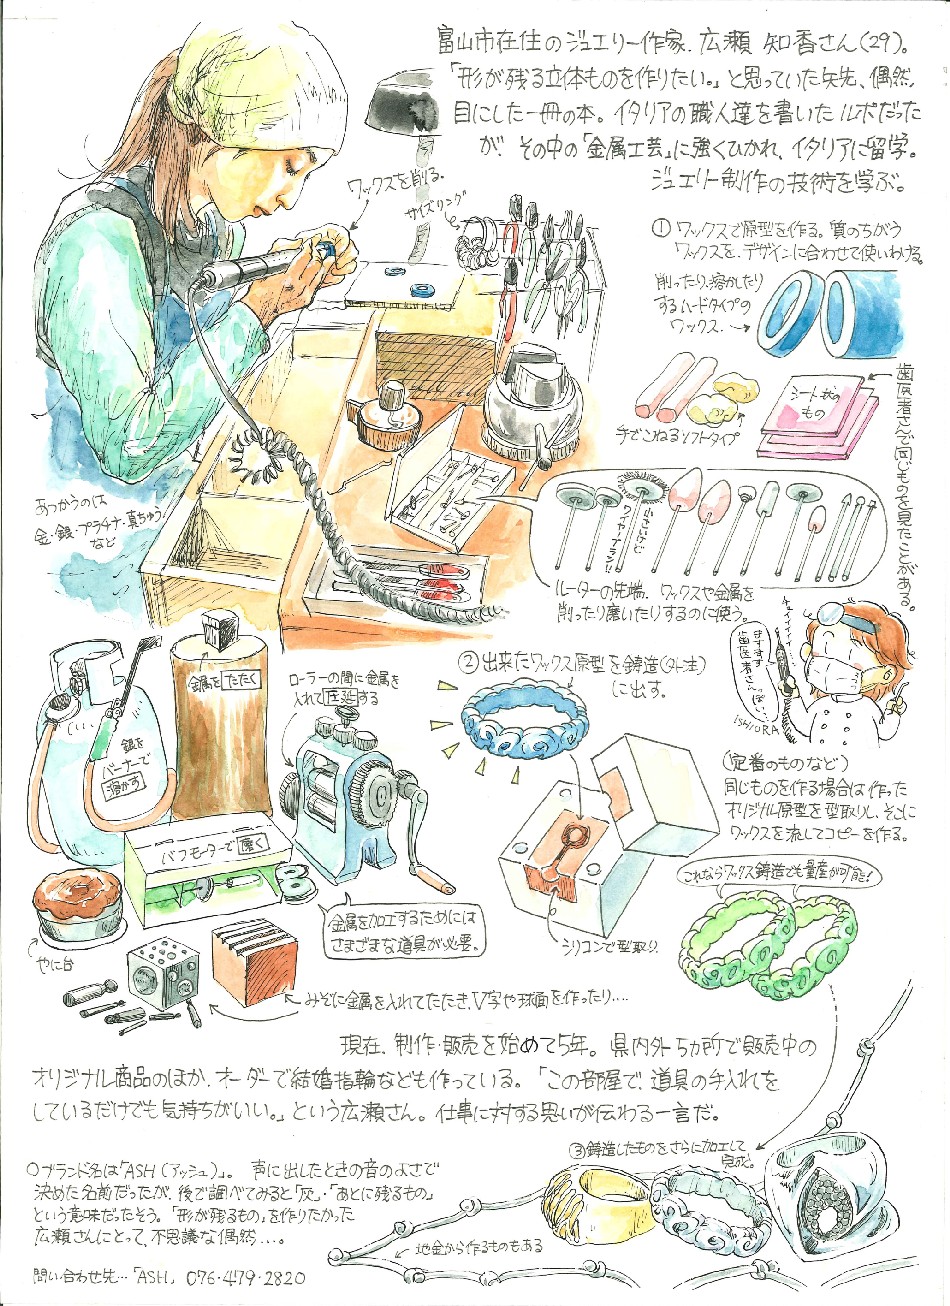 富山市在住のジュエリー作家、広瀬 知香さん(29)。
「形が残る立体ものを作りたい。」と思っていた矢先、偶然、
目にした一冊の本。イタリアの職人達を書いたルポだった
が、その中の「金属工芸」に強くひかれ、イタリアに留学。
ジュエリー制作の技術を学ぶ。
ワックスを削る。
サイズリング
① ワックスで原型を作る。質のちがう
ワックスを、デザインに合わせて使いわける。
削ったり、溶かしたり
するハードタイプの
ワックス。
手でこねるソフトタイプ
シート状の
もの
歯医者さんで同じものを見たことがある。
あつかうのは
金・銀・プラチナ・真ちゅう
など
ワイヤーブラシ
ルーターの先端。ワックスや金属を
削ったり磨いたりするのに使う。
ますます
歯医者さんっぽい…
ISHIURA
② 出来たワックス原型を鋳造(外注)
に出す。
金属をたたく
ローラーの間に金属を
入れて圧延する
銀を
バーナーで
溶かす
バフモーターで磨く
(定番のものなど)
同じものを作る場合は作った
オリジナル原型を型取りし、そこに
ワックスを流してコピーを作る。
これならワックス鋳造でも量産が可能!
シリコンで型取り
金属を加工するためには
さまざまな道具が必要。
やに台
みぞに金属を入れてたたき、V字や球面を作ったり…
現在、制作・販売を始めて5年。県内外5か所で販売中の
オリジナル商品のほか、オーダーで結婚指輪なども作っている。「この部屋で、道具の手入れを
しているだけでも気持ちがいい。」という広瀬さん。仕事に対する思いが伝わる一言だ。
③ 鋳造したものをさらに加工して
完成。
○ブランド名は「ASH(アッシュ)」。声に出したときの音のよさで
決めた名前だったが、後で調べてみると「灰」・「あとに残るもの」
という意味だったそう。「形が残るもの」を作りたかった
広瀬さんにとって、不思議な偶然…。
地金から作るものもある
問い合わせ先…「ASH」 076・479・2820